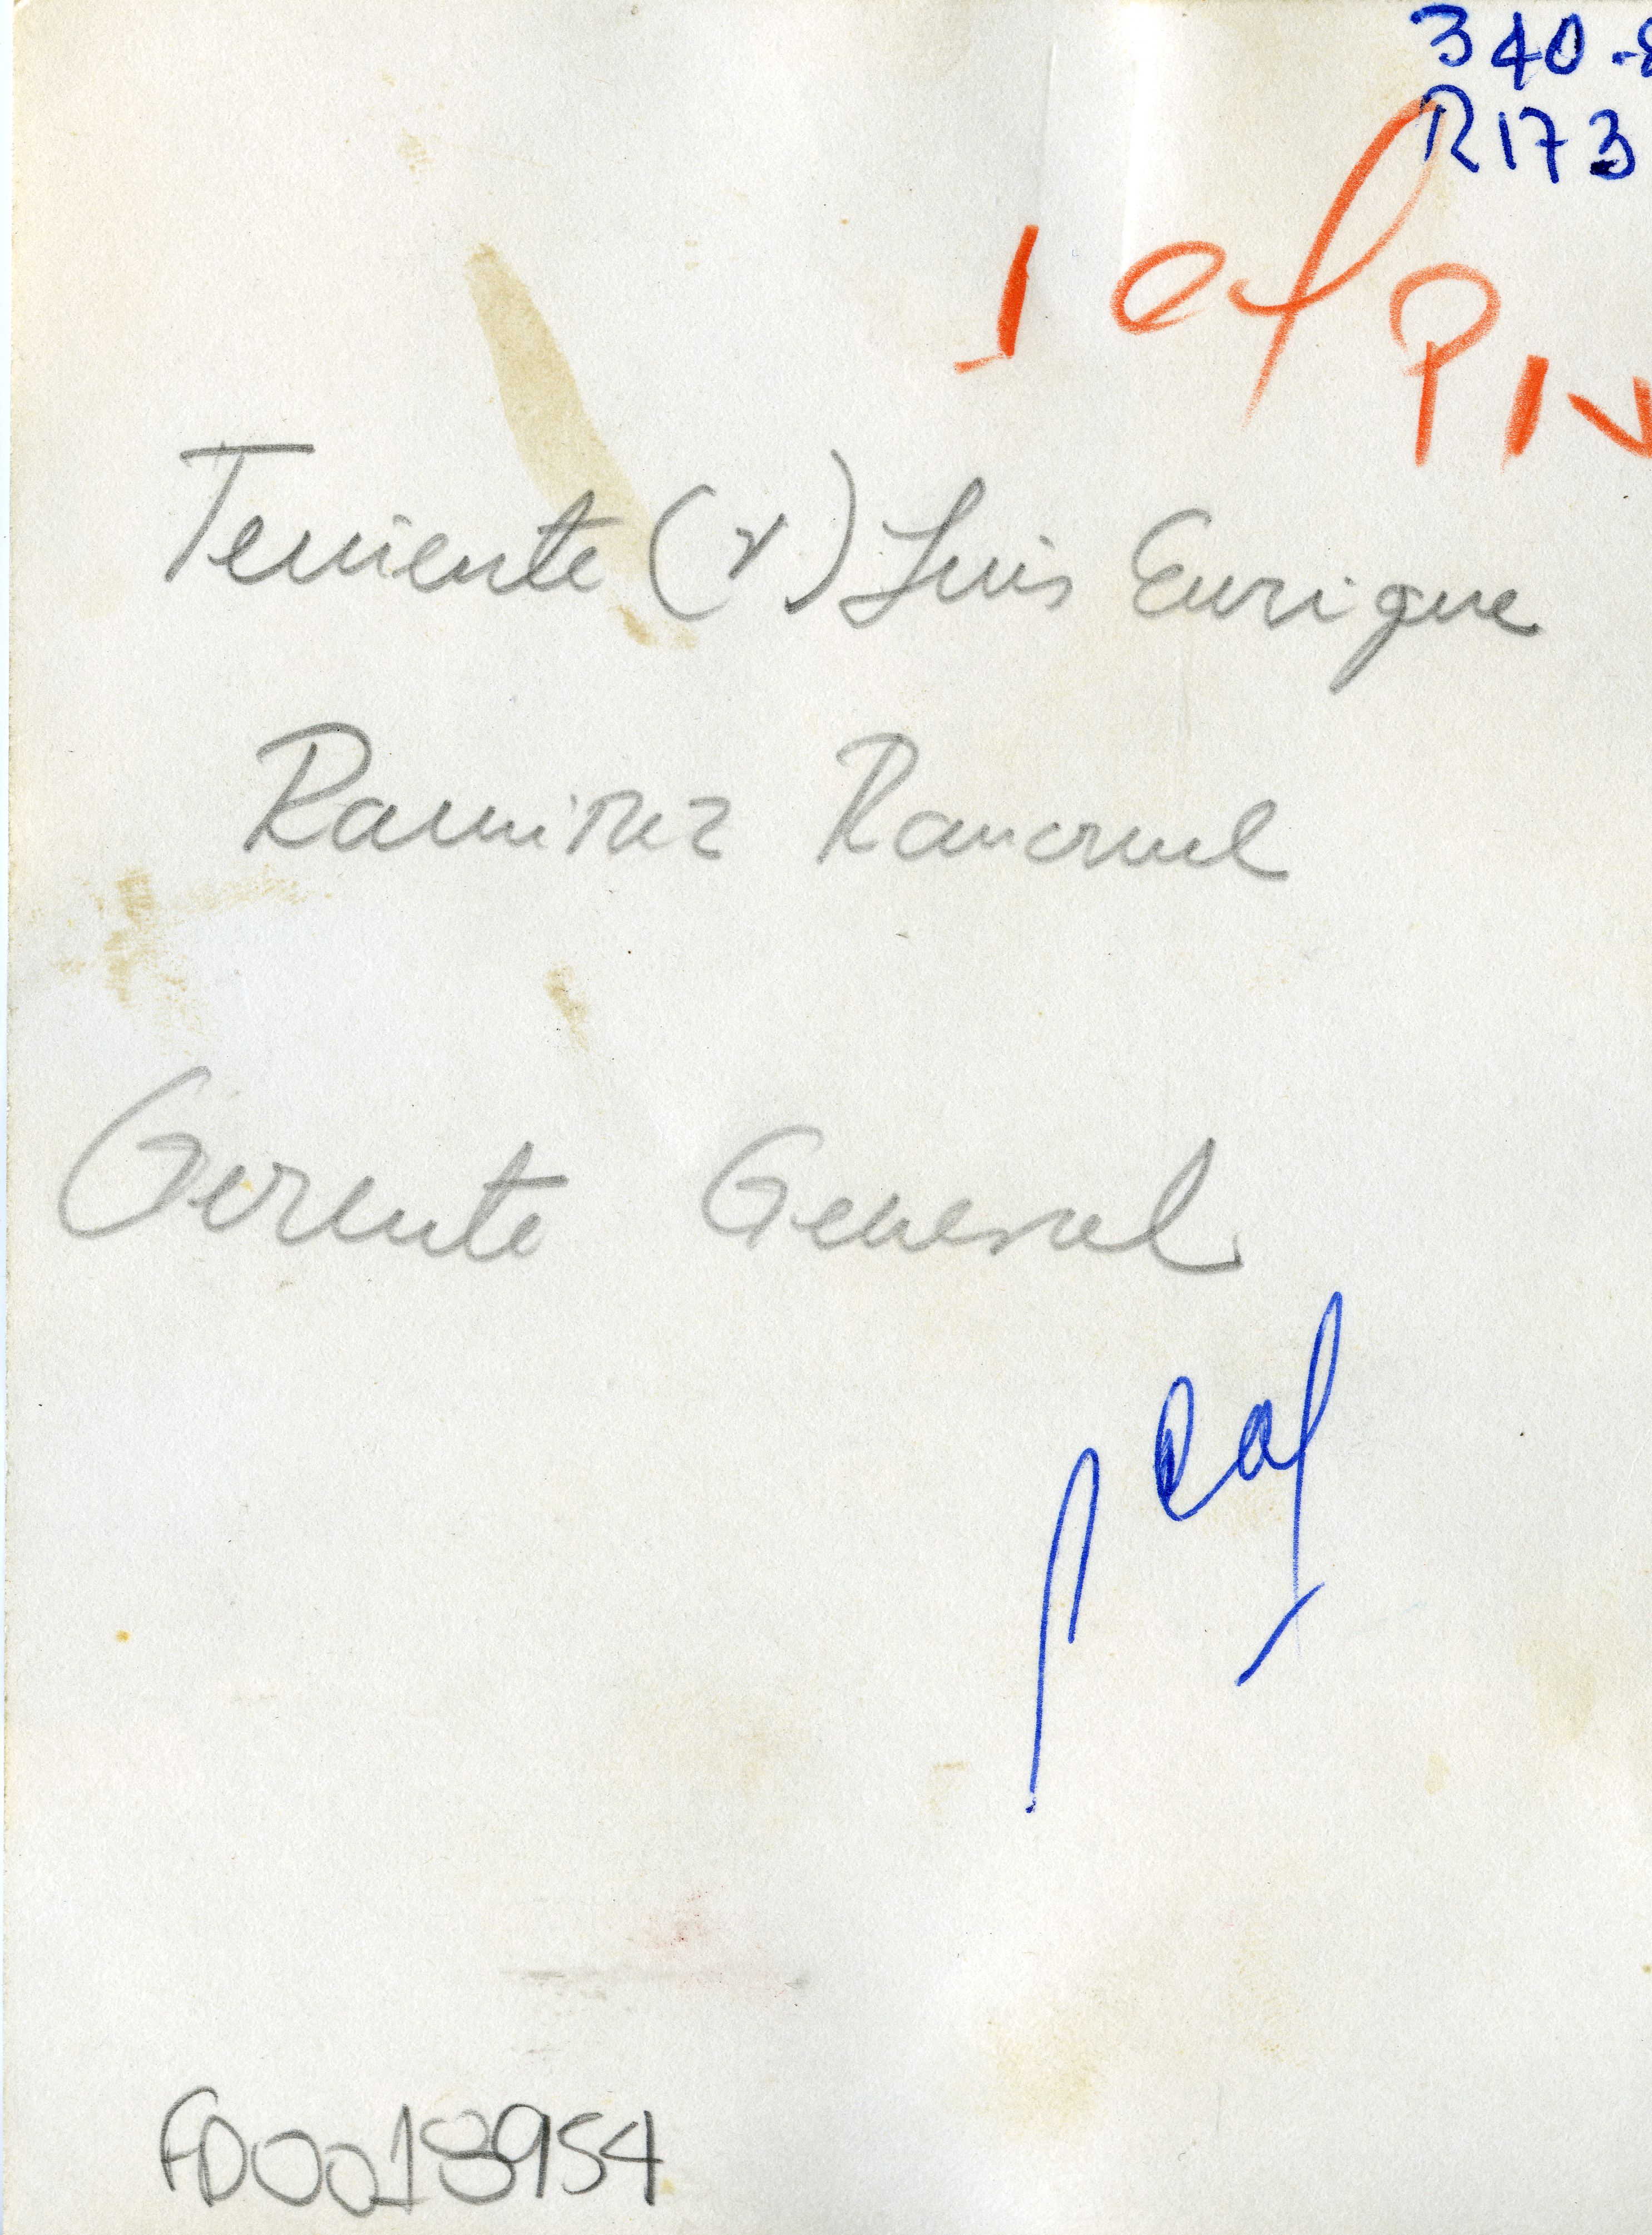 340-8
R173
1 col PIN
Teniente (r) Luis Enrique
Ramirez
Gerente General
1 col
FD0018954